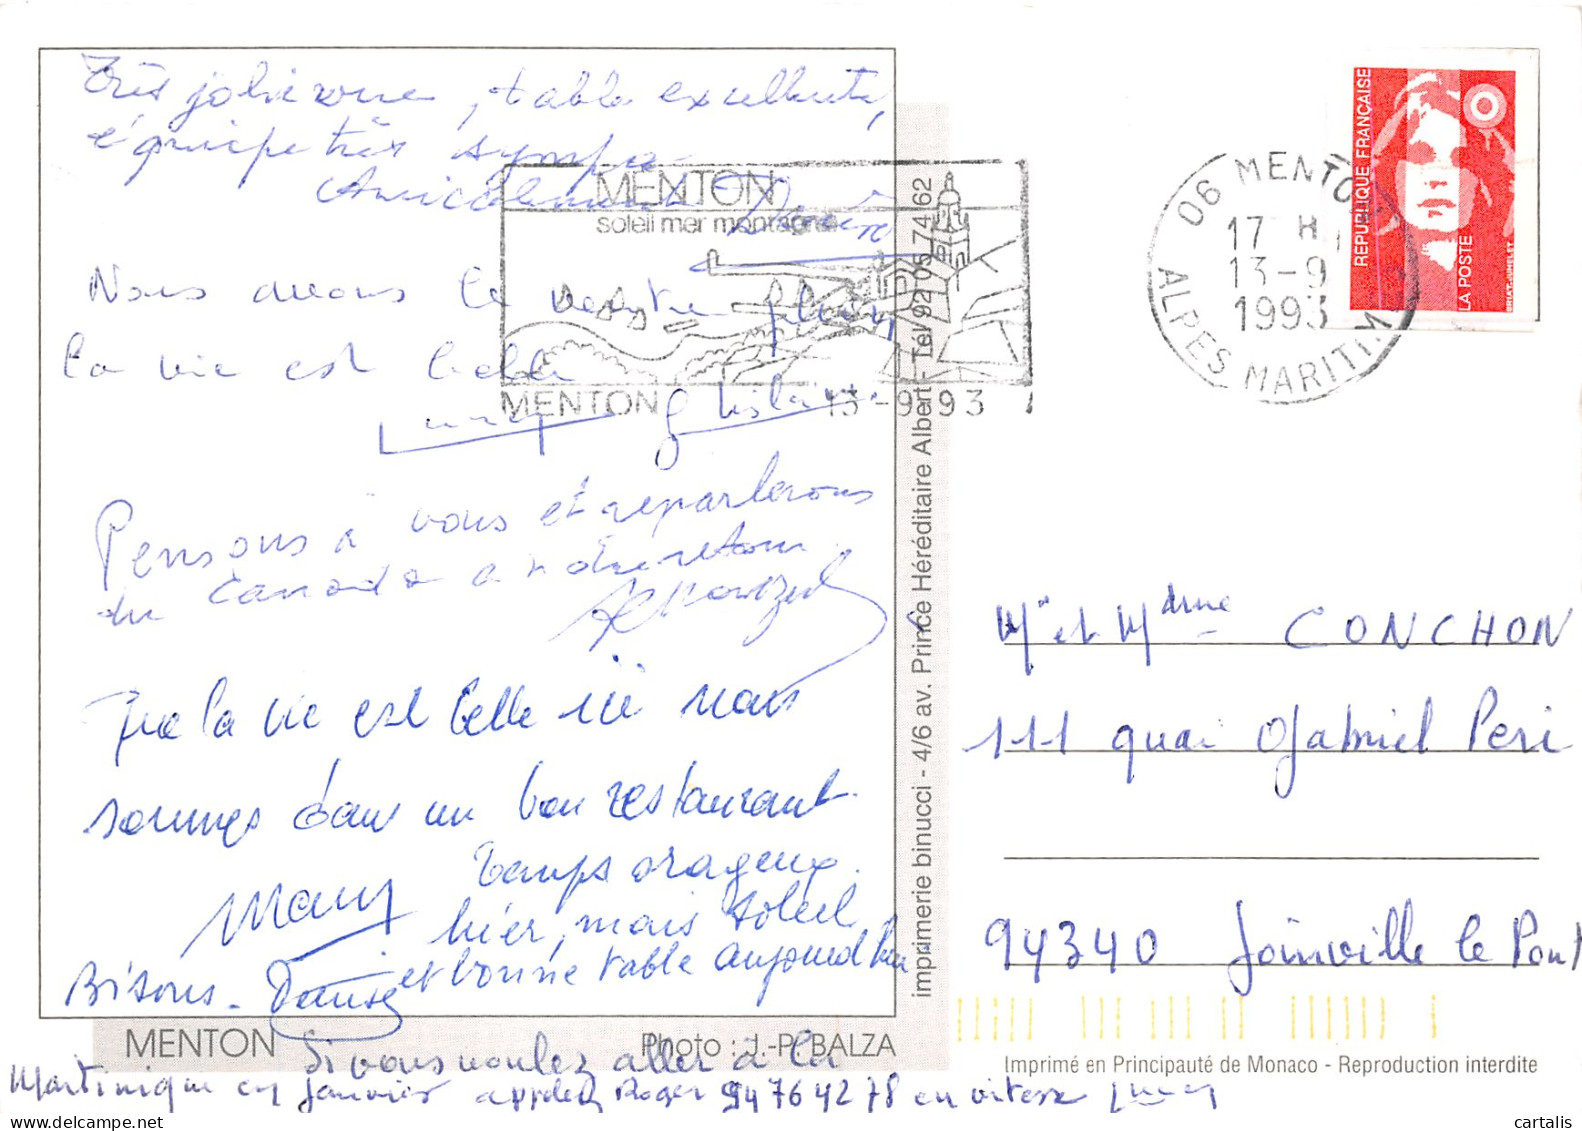 Très jolie vue, table excellente,
équipe très sympa
Amicalement
Nous avons le ventre plein
la vie est belle
Lucy Ghislaine
Pensons à vous et reparlerons
du Canada à notre retour
Que la vie est belle ici nous
sommes dans un bon restaurant.
Temps orageux
hier, mais soleil
et bonne table aujourd'hui.
Many
Bisous - Denise
MENTON
Photo : J.-P. BALZA
Si vous voulez aller à la
Martinique en janvier appelez Roger 94 76 42 78 en vitesse Lucy
MENTON
soleil mer montagne
MENTON
13-9-93
imprimerie binucci - 4/6 av. Prince Héréditaire Albert - Tél. 92 05 74 62
06 MENTON
17 H
13-9
1993
ALPES MARITIMES
REPUBLIQUE FRANÇAISE
LA POSTE
Mr et Mdme CONCHON
111 quai Gabriel Peri
94340 Joinville le Pont
Imprimé en Principauté de Monaco - Reproduction interdite
cartalis